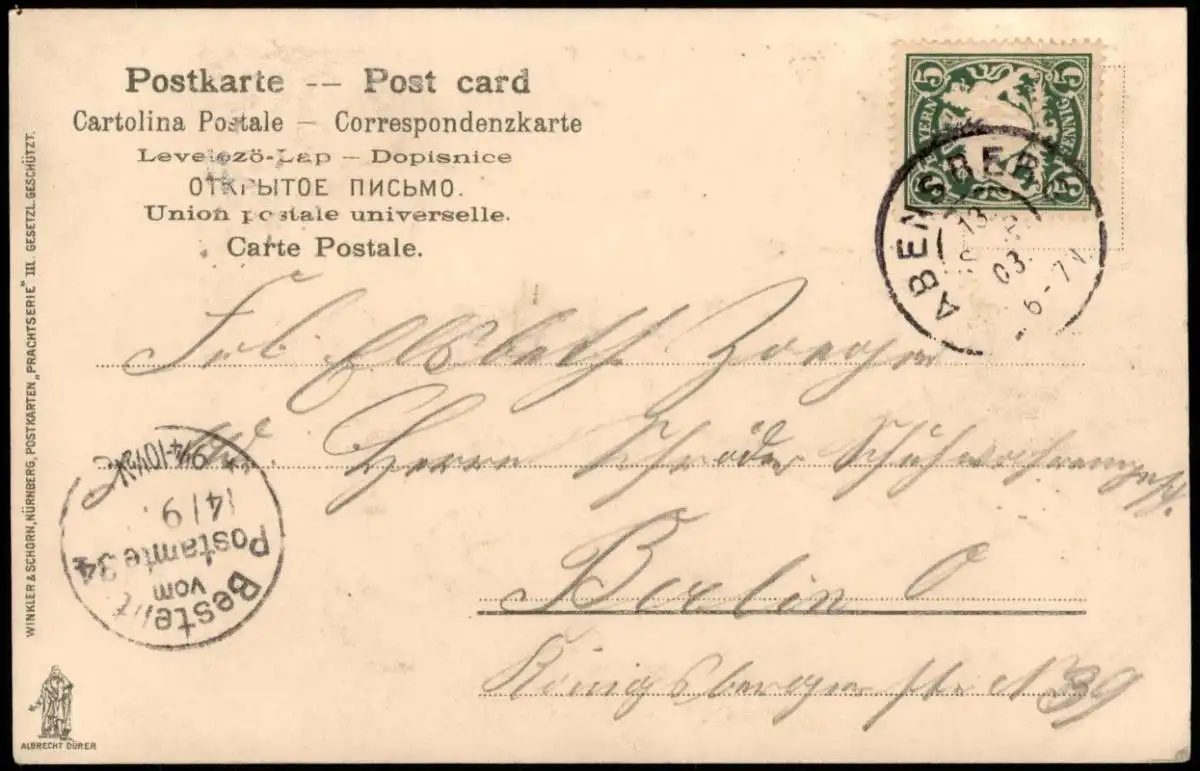 Postkarte -- Post card
Cartolina Postale – Correspondenzkarte
Levelező-Lap – Dopisnice
ОТКРЫТОЕ ПИСЬМО.
Union postale universelle.
Carte Postale.
BAYERN 5 PFENNIG 5
ABENSBERG
13
03
6-7
Frl. Elsbeth
Herrn Schröder
Berlin O
Königsbergerstr. N 39
Bestellt
vom
Postamte 34
14/9.
WINKLER & SCHORN, NÜRNBERG, POSTKARTEN „PRACHTSERIE" III. GESETZL. GESCHÜTZT.
ALBRECHT DÜRER